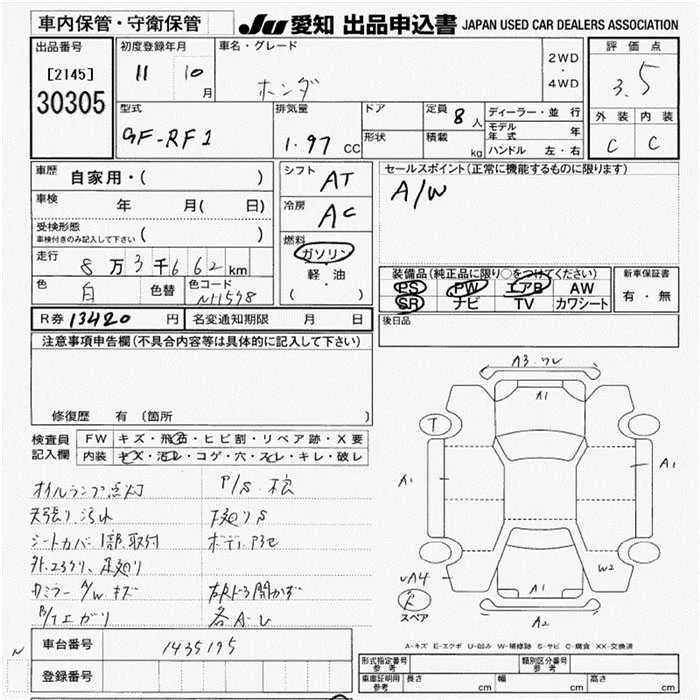 車内保管・守衛保管
JU 愛知 出品申込書 JAPAN USED CAR DEALERS ASSOCIATION
出品番号
[2145]
30305
初度登録年月
11 10月
車名・グレード
ホンダ
2WD
・
4WD
評価点
3.5
外装 内装
C C
型式
GF-RF1
排気量
1.97 CC
ドア
形状
定員 8人
積載 kg
ディーラー・並行
モデル年式 年
ハンドル 左・右
車歴 自家用・( )
車検 年 月( 日)
受検形態
車検付きのみ記入して下さい ( )
走行 8万3千662km
色 白 色替 色コード NH578
シフト AT
冷房 AC
燃料
ガソリン
軽・油
( )
セールスポイント(正常に機能するものに限ります)
A/W
装備品(純正品に限り○をつけてください)
PS PW エアB AW
SR ナビ TV カワシート
新車保証書
有・無
後日品
R券 13420 円 名変通知期限 月 日
注意事項申告欄(不具合内容等は具体的に記入して下さい)
修復歴 有(箇所
検査員記入欄
FW キズ・飛石・ヒビ割・リペア跡・X要
内装 キズ・汚レ・コゲ・穴・スレ・キレ・破レ
オイルランプ点灯 P/S.
天張り汚れ 下廻りS
シートカバー1部取付 ボディ
ミラー A/W キズ 右Rドア開かず
各A・U
A3.ワレ
A1
T
A1
A1
W2
A4
A1
A2
スペア
A-キズ E-エクボ U-凹み W-補修跡 S-サビ C-腐食 XX-交換済
車台番号 1435195
登録番号
形式指定番号 参考 類別区分番号 参考
車庫証明用 参考 長さ cm 幅 cm 高さ cm